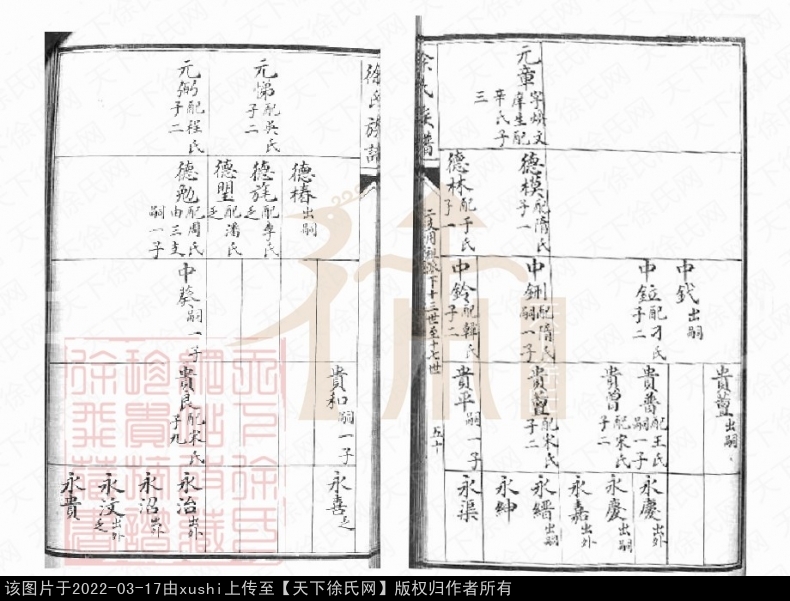 徐氏族譜
元章 字煥文 庠生配 辛氏子 三
德模 配隋氏 子一
德林 配于氏 子一
中鉞 出嗣
中鉝 配刁氏 子二
中鉶 配隋氏 嗣一子
中鈴 配韓氏 子二
貴薑 出嗣
貴番 配王氏 嗣一子
貴曾 配宋氏 子二
貴薑 配宋氏 子二
貴平 嗣一子
永慶 出外
永慶 出嗣
永嘉 出外
永縉 出嗣
永紳
永渠
下十三世至十七世
五十
徐氏族譜
元悌 配吳氏 子二
元弼 配程氏 子二
德椿 出嗣
德旄 配李氏 乏
德堲 配潘氏 乏
德勉 配周氏 由三支 嗣一子
中葵 嗣一子
貴和 嗣一子
貴良 配宋氏 子九
永喜 乏
永冶 出外
永沼 出外
永汶 出外 乏
永貴
该图片于2022-03-17由xushi上传至【天下徐氏网】版权归作者所有